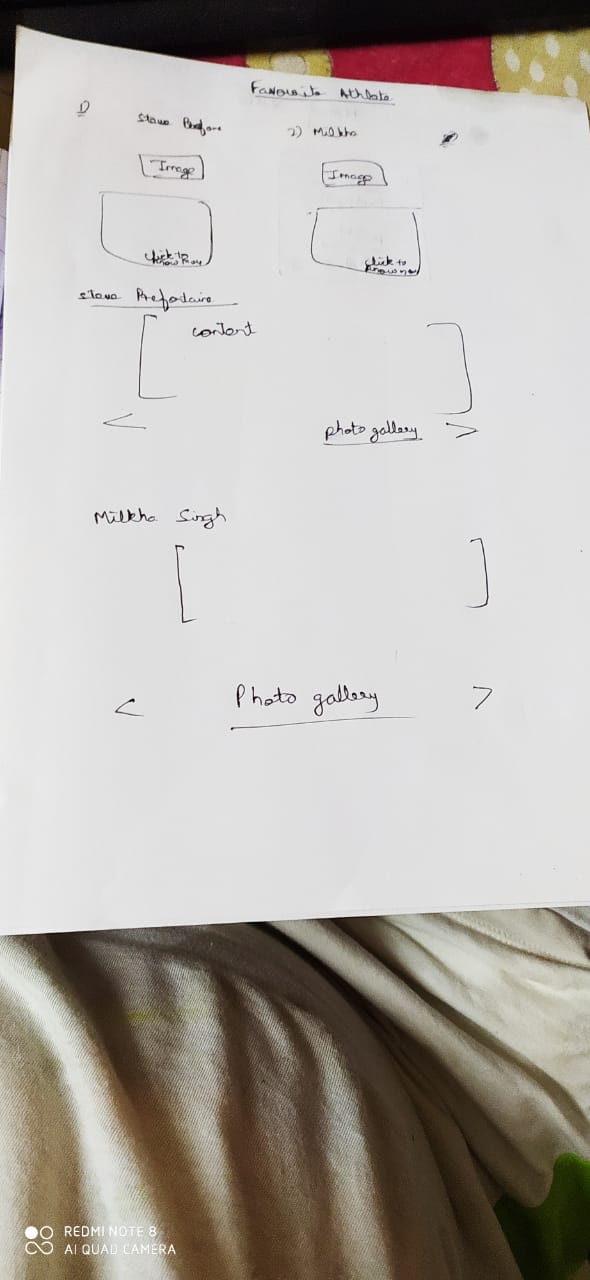 Favourite Athlete
1)
Steve
2) Milkha
Image
Image
click to
know now
click to
know now
Steve Prefontaire
content
< photo gallery >
Milkha Singh
< Photo gallery >
REDMI NOTE 8
AI QUAD CAMERA